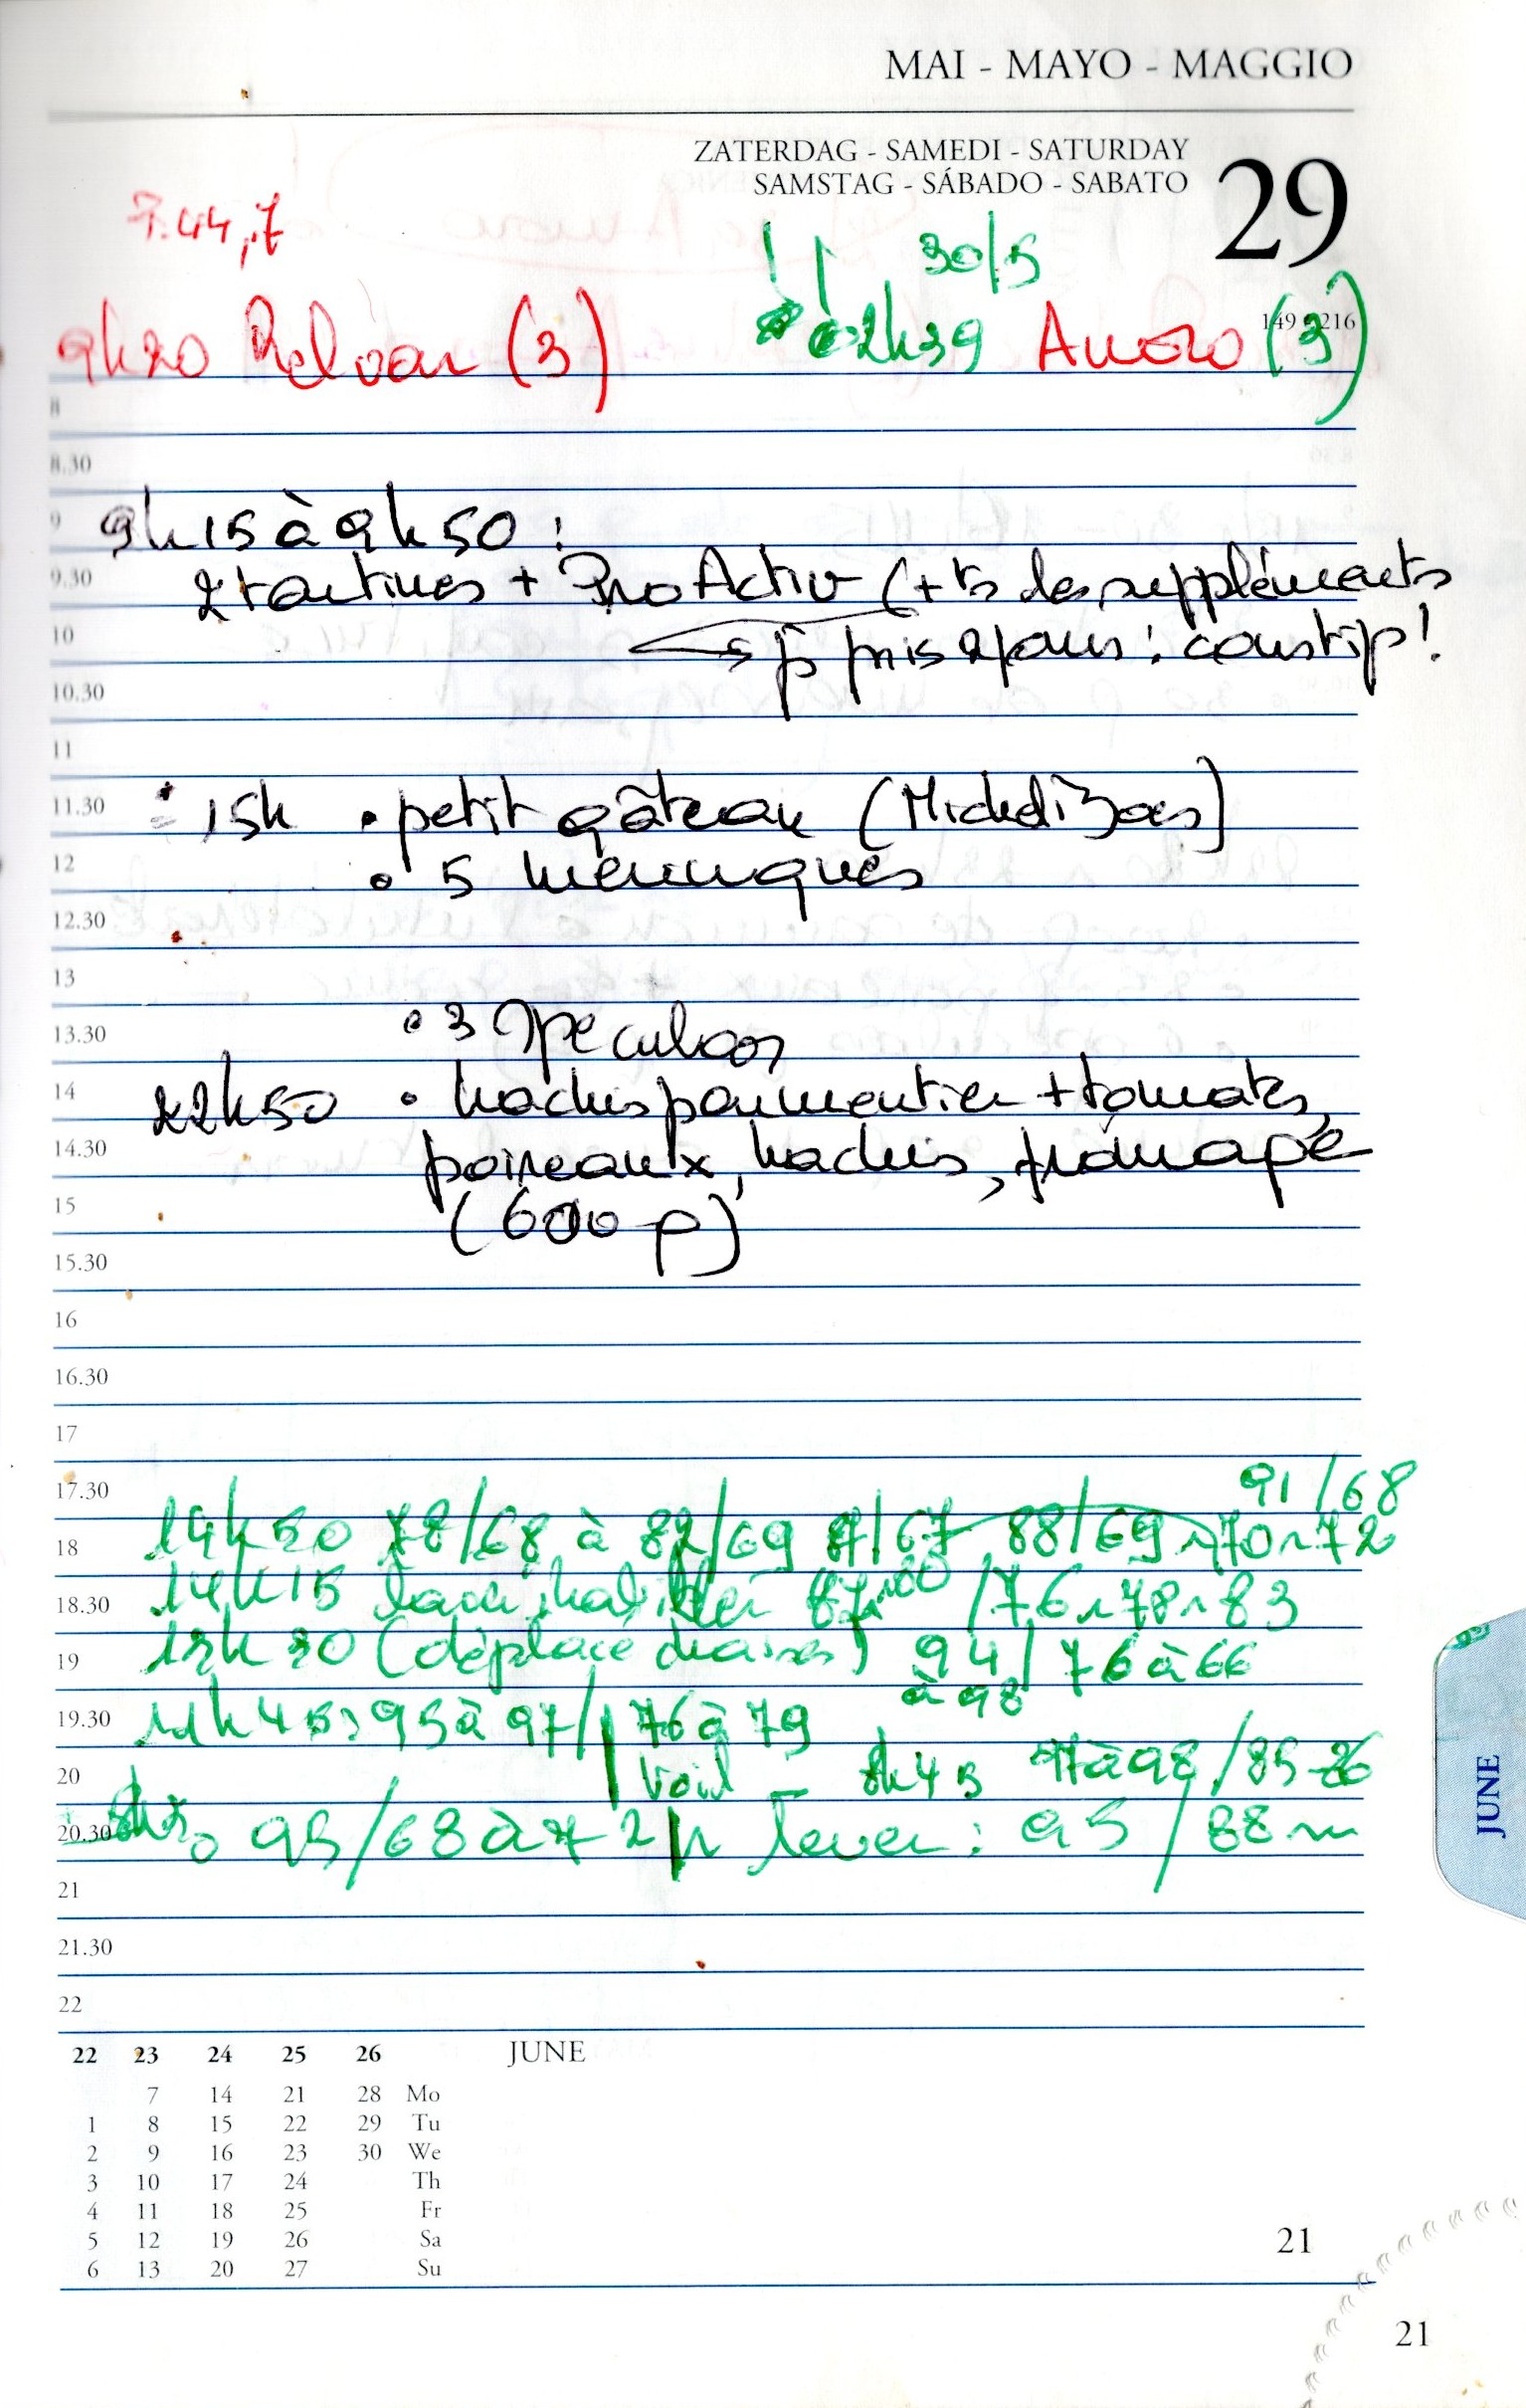 MAI - MAYO - MAGGIO
ZATERDAG - SAMEDI - SATURDAY
SAMSTAG - SÁBADO - SABATO
29
7.44,7
30/5
149 216
9h20 Relvar (3)
02h39 Anoro (3)
8
8.30
9 9h15 à 9h50 :
9.30 2 tartines + ProActiv (+ ts les suppléments
10 pris : constip!
10.30
11
11.30 15h • petit gâteau
12 • 5 meringues
12.30
13
13.30 • 3 speculoos
14 22h50 • hachis parmentier + tomates,
14.30 poireaux, hachis, fromage
15 (600 p)
15.30
16
16.30
17
17.30 91/68
18 14h50 78/68 à 82/69 88/69 70 72
18.30 14h15 76 78 83
19 (déplacé chaises) 94/76 à 66
à 98
19.30 11h45 : 95 à 97/76 à 79
20 8h45 97 à 98/85
20.30 95/68 à 72 lever : 95/88
21
21.30
22
22 23 24 25 26 JUNE
7 14 21 28 Mo
1 8 15 22 29 Tu
2 9 16 23 30 We
3 10 17 24 Th
4 11 18 25 Fr
5 12 19 26 Sa
6 13 20 27 Su
21
21
JUNE